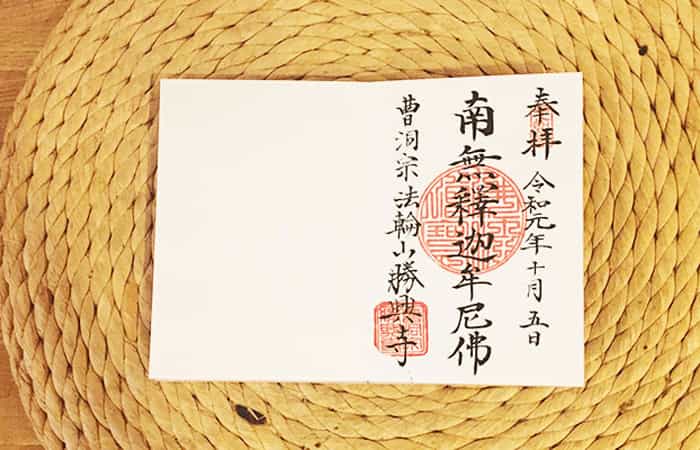 奉拝 令和元年十月五日
南無釋迦牟尼佛
曹洞宗 法輪山勝興寺